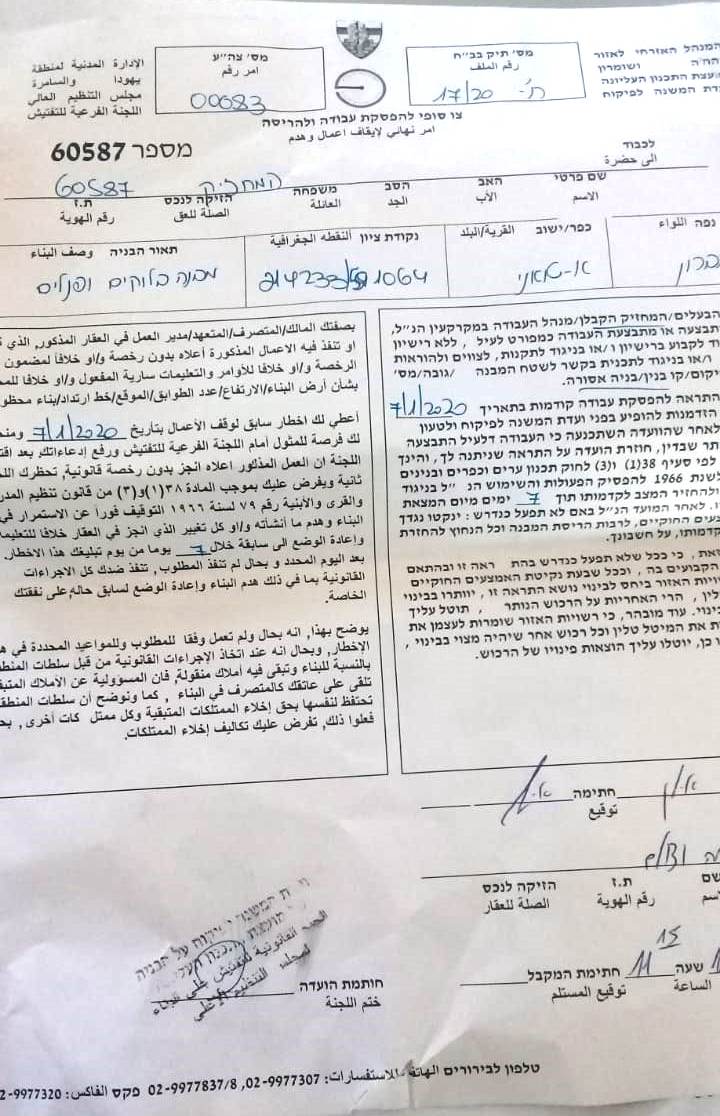 המנהל האזרחי לאזור
ושומרון
מועצת התכנון העליונה
המשנה לפיקוח
מס' תיק בב"ח
رقم الملف
ת'- 17/20
מס' צה"ע
امر رقم
00683
الإدارة المدنية لمنطقة
يهودا والسامرة
مجلس التنظيم العالي
اللجنة الفرعية للتفتيش
צו סופי להפסקת עבודה ולהריסה
امر نهائي لإيقاف اعمال وهدم
מספר 60587
לכבוד
الى حضرة
המחזיק 60587
שם פרטי האב הסב משפחה הזיקה לנכס ת.ז
الاسم الأب الجد العائلة الصلة للعق رقم الهوية
נפה اللواء כפר/ישוב القرية/البلد נקודת ציון النقطه الجغرافية תאור הבניה وصف البناء
א-טאני
מבנה בלוקים ופנלים
הבעלים/המחזיק הקבלן/מנהל העבודה במקרקעין הנ"ל,
תבצעה או מתבצעת העבודה כמפורט לעיל , ללא רישיון
לקבוע ברישיון ו/או בניגוד לתקנות, לצווים ולהוראות
ו/או בניגוד לתכנית בקשר לשטח המבנה /גובה/מס'
קו בנין/בניה אסורה.
התראה להפסקת עבודה קודמות בתאריך 7/1/2020
הזדמנות להופיע בפני ועדת המשנה לפיקוח ולטעון
לאחר שהוועדה השתכנעה כי העבודה דלעיל התבצעה
שבדין, חוזרת הועדה על התראה שניתנה לך, והינך
לפי סעיף 38(1) ו(3) לחוק תכנון ערים וכפרים ובנינים
לשנת 1966 להפסיק הפעולות והשימוש הנ "ל בניגוד
ולהחזיר המצב לקדמותו תוך 7 ימים מיום המצאת
לאחר המועד הנ"ל באם לא תפעל כנדרש : ינקטו נגדך
החוקיים, לרבות הריסת המבנה וכל הנחוץ להחזרת
לקדמותו, על חשבונך.
כי ככל שלא תפעל כנדרש בהת ראה זו ובהתאם
הקבועים בה , וככל שבעת נקיטת האמצעים החוקיים
רשויות האזור ביחס לבינוי נושא התראה זו , יוותרו בבינוי
הרי האחריות על הרכוש הנותר , תוטל עליך
בבינוי. עוד מובהר, כי רשויות האזור שומרות לעצמן את
את המיטל טלין וכל רכוש אחר שיהיה מצוי בבינוי ,
כן, יוטלו עליך הוצאות פינויו של הרכוש.
بصفتك المالك/المتصرف/المتعهد/مدير العمل في العقار المذكور, الذي
او تنفذ فيه الاعمال المذكورة أعلاه بدون رخصة و/او خلافا لمضمون
الرخصة و/او خلافا للأوامر والتعليمات سارية المفعول و/او خلافا
بشأن أرض البناء/الارتفاع/عدد الطوابق/الموقع/خط ارتداد/بناء
أعطي لك اخطار سابق لوقف الأعمال بتاريخ 7/1/2020
لك فرصة للمثول أمام اللجنة الفرعية للتفتيش ورفع إدعاءاتك, بعد
اللجنة ان العمل المذكور اعلاه انجز بدون رخصة قانونية, تحظرك
ثانية ويفرض عليك بموجب المادة ٣٨(١)و(٣) من قانون تنظيم المدن
والقرى والأبنية رقم ٧٩ لسنة ١٩٦٦ التوقيف فوراً عن الاستمرار في
البناء وهدم ما أنشأته و/او كل تغيير الذي انجز في العقار خلافا
وإعادة الوضع الى سابقة خلال 7 يوما من يوم تبليغك هذا الاخطار.
بعد اليوم المحدد و بحال لم تنفذ المطلوب , تنفذ ضدك كل الاجراءات
القانونية بما في ذلك هدم البناء وإعادة الوضع لسابق حاله,على نفقتك
الخاصة.
يوضح بهذا, انه بحال ولم تعمل وفقا للمطلوب وللمواعيد المحددة في
الإخطار, وبحال انه عند اتخاذ الإجراءات القانونية من قبل سلطات
بالنسبة للبناء وتبقى فيه أملاك منقولة, فإن المسؤولية عن الأملاك
تلقى على عاتقك كالمتصرف في البناء , كما ونوضح أن سلطات
تحتفظ لنفسها بحق إخلاء الممتلكات المتبقية وكل ممتل كات أخرى ,
فعلوا ذلك, تفرض عليك تكاليف إخلاء الممتلكات.
חתימה
توقيع
ת.ז הזיקה לנכס
رقم الهوية الصلة للعقار
שעה חתימת המקבל
الساعة توقيع المستلم
חותמת הועדה
ختم اللجنة
טלפון לבירורים الهاتف للاستفسارات: 02-9977307, 02-9977837/8 פקס الفاكس: 02-9977320